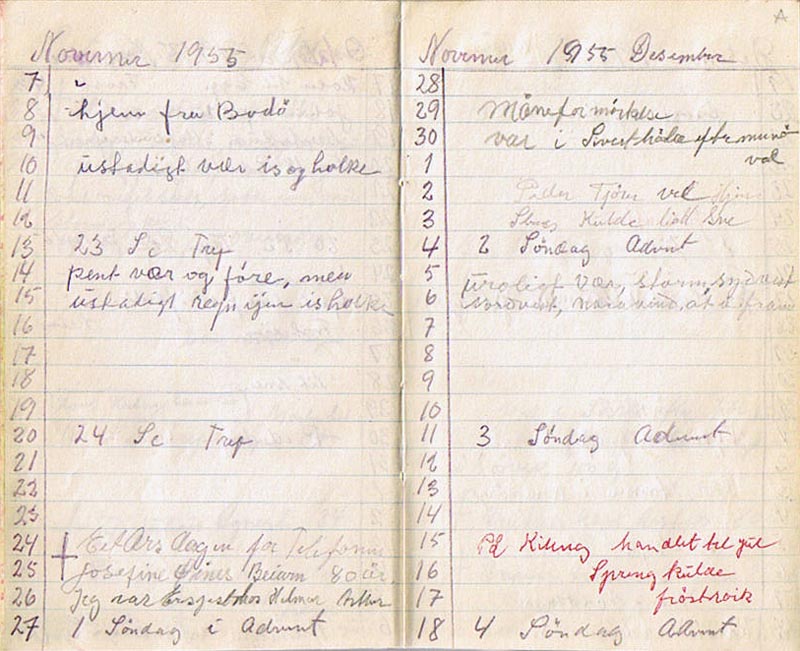 November 1955
7 i
8 hjem fra Bodö
9
10 ustadigt vær is og holke
11
12
13 23 Se Tref
14 pent vær og före, men
15 ustadigt regn igjen is holke
16
17
18
19
20 24 Se Tref
21
22
23
24 Et Års dagen for Telefonen
25 Josefine Beiarn 80 år
26 Jeg var hos Helmer
27 1 Söndag i Advent
A
November 1955 Desember
28
29 Måneformörkelse
30 var i
1 val
2 Peder
3 Kulde Sne
4 2 Söndag Advent
5 uroligt vær, storm, sydvest
6 nordvest,
7
8
9
10
11 3 Söndag Advent
12
13
14
15 På handlet til jul
16 Spreng kulde
17 fröströik
18 4 Söndag Advent